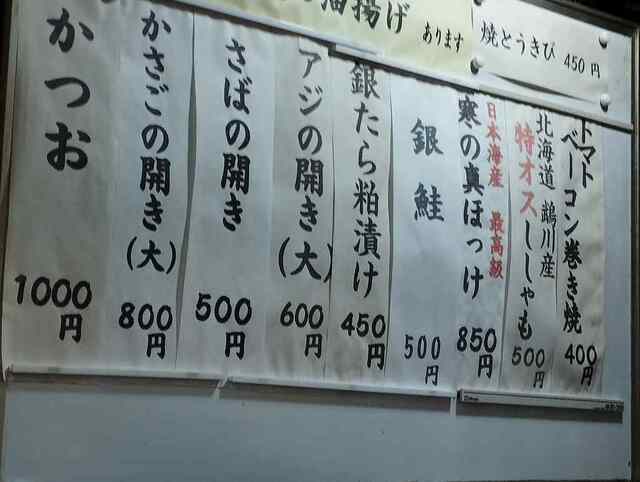 油揚げ
あります
焼とうきび 450円
トマト
ベーコン巻き焼
400円
北海道 鵡川産
特オスししゃも
500円
日本海産 最高級
寒の真ほっけ
850円
銀鮭
500円
銀たら粕漬け
450円
アジの開き(大)
600円
さばの開き
500円
かさごの開き(大)
800円
かつお
1000円